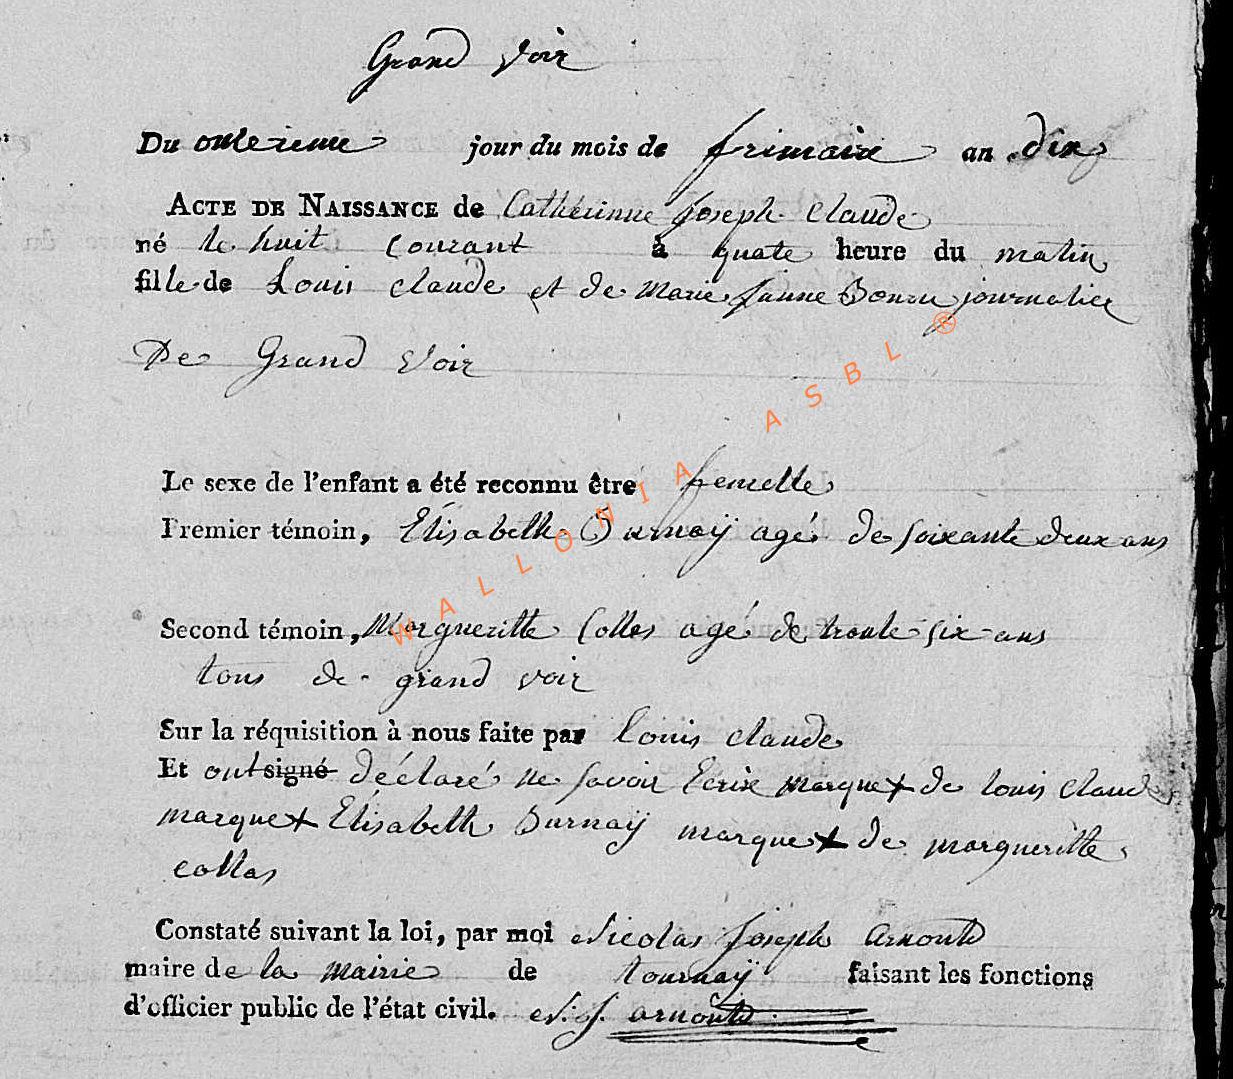 Grand Voir
Du onzieme jour du mois de frimaire an dix
ACTE DE NAISSANCE de Catherinne Joseph Claude
né le huit Courant à quate heure du matin
fille de Louis Claude et de Marie Janne journalier
De Grand Voir
Le sexe de l'enfant a été reconnu être femelle
Premier témoin, Elisabeth Burnaÿ agé de soixante deux ans
Second témoin, Margueritte Collas agé de trente six ans
tous de grand voir
Sur la réquisition à nous faite par Louis Claude
Et ont signé déclaré ne savoir Ecrire marque + de louis Claude
marque + Elisabeth Burnaÿ marque + de margueritte
collas
Constaté suivant la loi, par moi Nicolas Joseph Arnould
maire de la Mairie de tournaÿ faisant les fonctions
d'officier public de l'état civil. N. J. arnould
WALLONIA ASBL ®